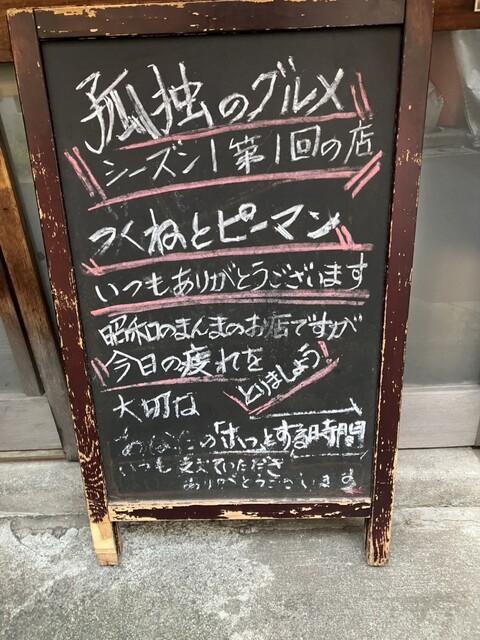 孤独のグルメ
シーズン1第1回の店
つくねとピーマン
いつもありがとうございます
昭和のまんまのお店ですが
今日の疲れを
とりましょう!
大切な
あなたの「ホッ」とする時間
いつも支えていただき
ありがとうございます